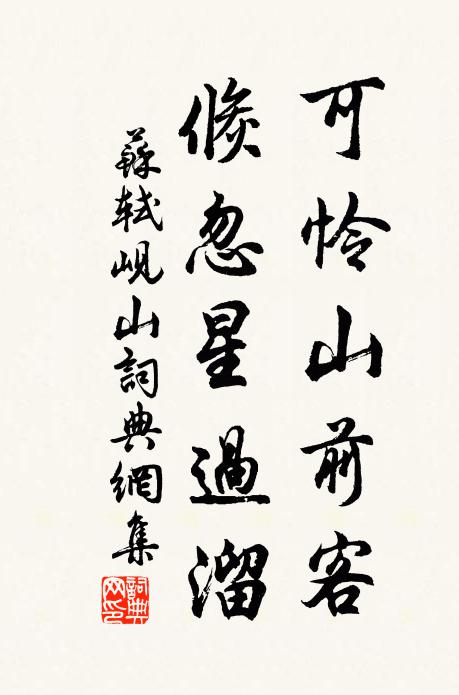 可怜山前客
倏忽星過溜
蘇軾峴山詞典網集
詞典網印